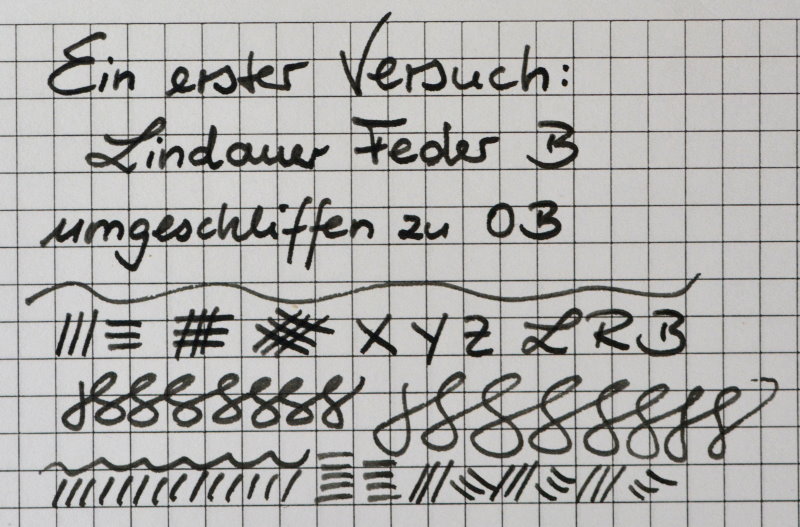 Ein erster Versuch:
Lindauer Feder B
umgeschliffen zu OB
X Y Z L R B